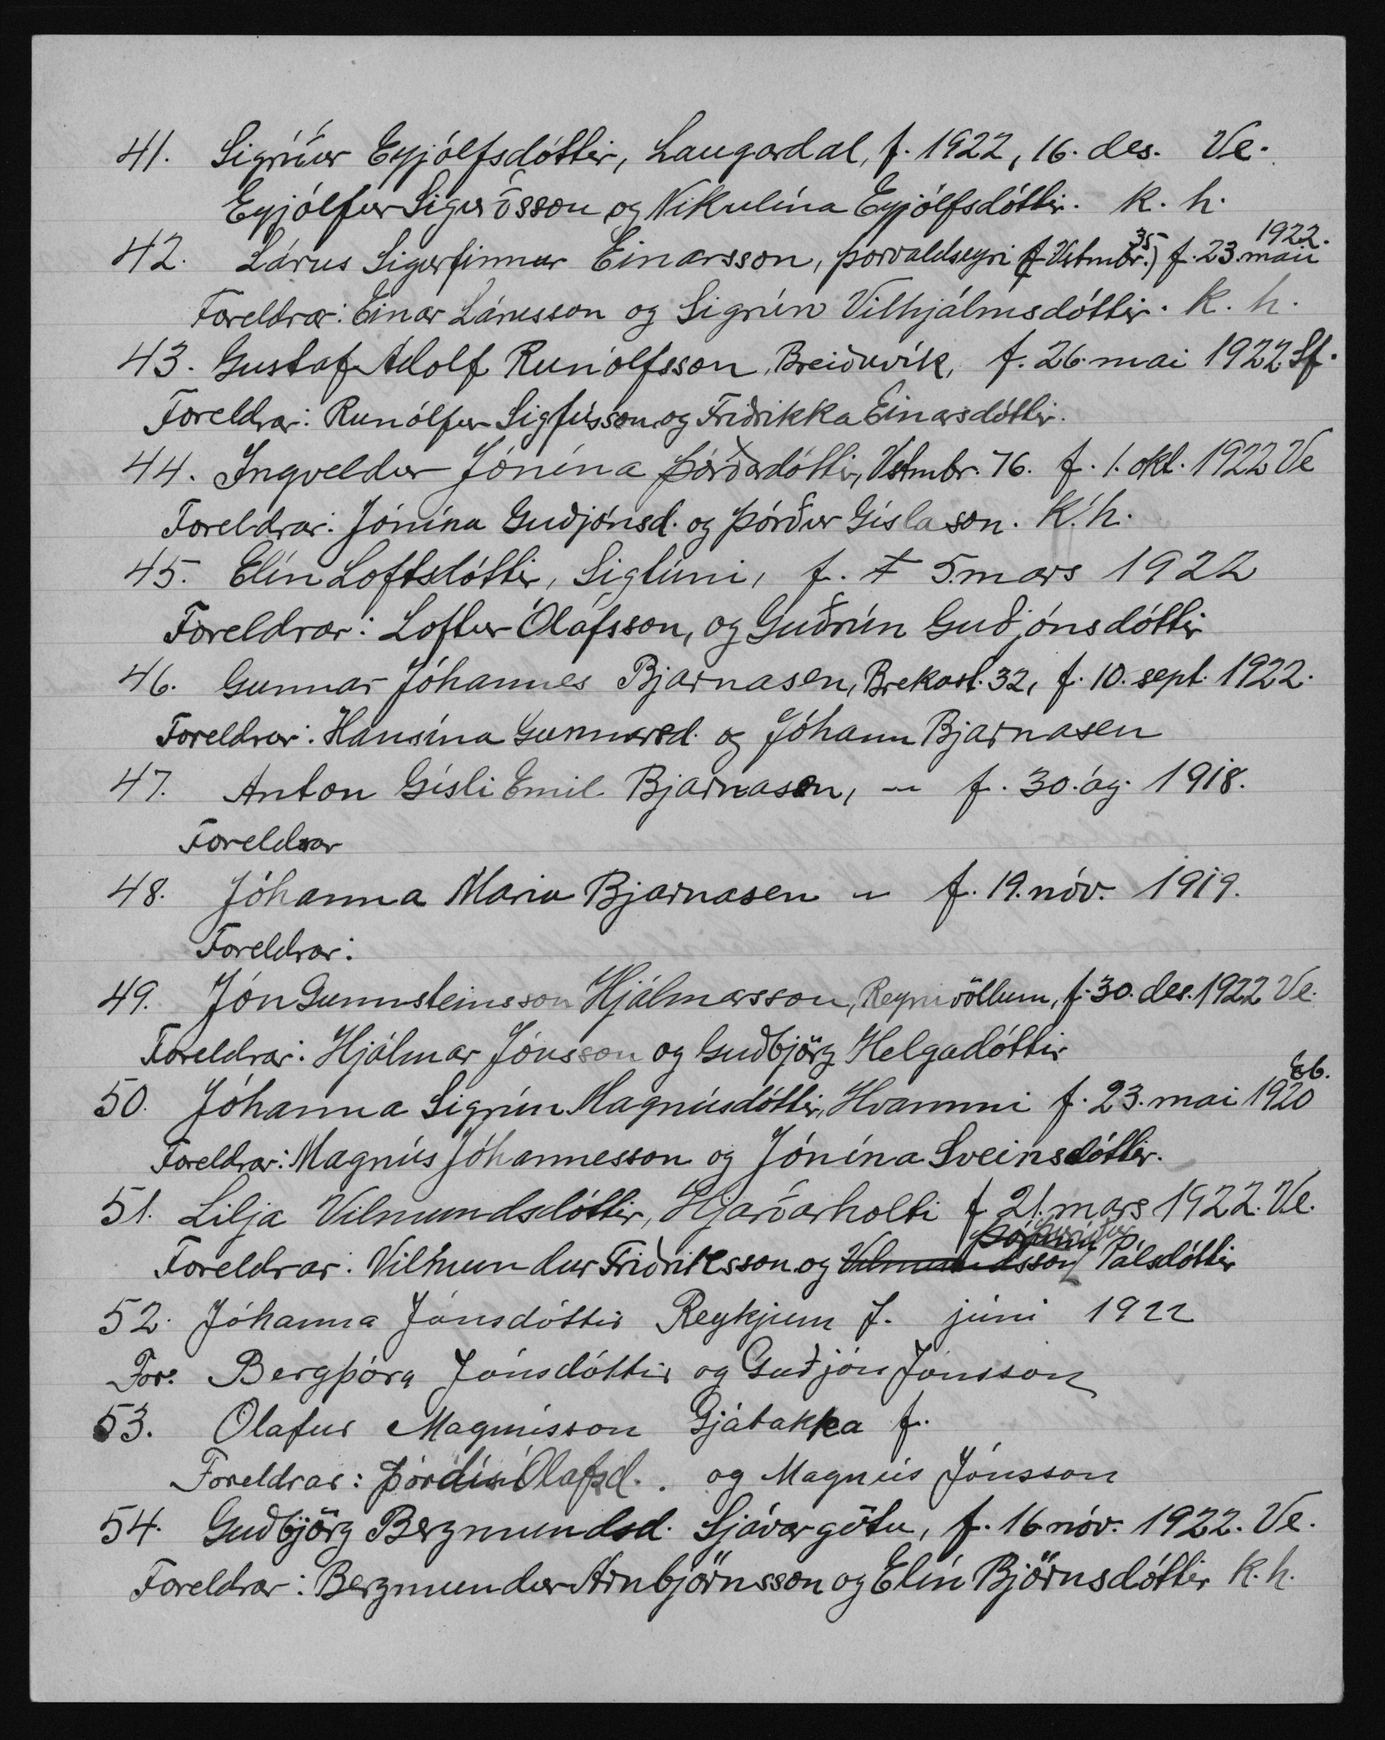 41. Sigríður Eyjólfsdóttir, Laugardal, f. 1922, 16. des. Ve.
Eyjólfur Sigurðsson og Nikulína Eyjólfsdóttir. K. h.
42. Lárus Sigurfinnur Einarsson, Þorvaldseyri (f Vstmbr. 35) f. 23. maí 1922.
Foreldrar: Einar Lárusson og Sigrún Vilhjálmsdóttir. K. h.
43. Gustaf Adolf Runólfsson, Breiðuvík, f. 26. mai 1922 Sf.
Foreldrar: Runólfur Sigfússon og Friðrikka Einarsdóttir.
44. Ingveldur Jónína Þórðardóttir, Vstmbr. 76. f. 1. okt. 1922 Ve
Foreldrar: Jónína Guðjónsd. og Þórður Gíslason. K. h.
45. Elín Loftsdóttir, Siglúni, f. 5. mars 1922
Foreldrar: Loftur Ólafsson, og Guðrún Guðjónsdóttir
46. Gunnar Jóhannes Bjarnasen, Brekast. 32, f. 10. sept. 1922.
Foreldrar: Hansína Gunnarsd. og Jóhann Bjarnasen
47. Anton Gísli Emil Bjarnasen, — f. 30. ág. 1918.
Foreldrar
48. Jóhanna Maria Bjarnasen — f. 19. nóv. 1919.
Foreldrar:
49. Jón Gunnsteinsson Hjálmarsson, Reynivöllum, f. 30. des. 1922 Ve.
Foreldrar: Hjálmar Jónsson og Guðbjörg Helgadóttir
50. Jóhanna Sigrún Magnúsdóttir, Hvammi f. 23. mai 1920 Eb.
Foreldrar: Magnús Jóhannesson og Jónína Sveinsdóttir.
51. Lilja Vilmundsdóttir, Hjarðarholti f 21. mars 1922. Ve.
Foreldrar: Vilmundur Friðriksson og Vilmundsson Þuríður Pálsdóttir
52. Jóhanna Jónsdóttir Reykjum f. júni 1922
For. Bergþóra Jónsdóttir og Guðjón Jónsson
53. Olafur Magnússon Gjábakka f.
Foreldrar: Þórdís Ólafsd. . og Magnús Jónsson
54. Guðbjörg Bergmundsd. Sjávargötu, f. 16 nóv. 1922. Ve.
Foreldrar: Bergmundur Arnbjörnsson og Elín Björnsdóttir K. h.